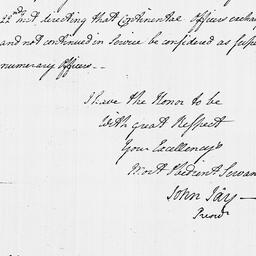 22nd inst directing that Continental Officers exchan
and not continued in Service be considered as Super
numerary Officers --
I have the Honor to be
With great Respect
Your Excellency's
Most Obedient Servan
John Jay
Presidt